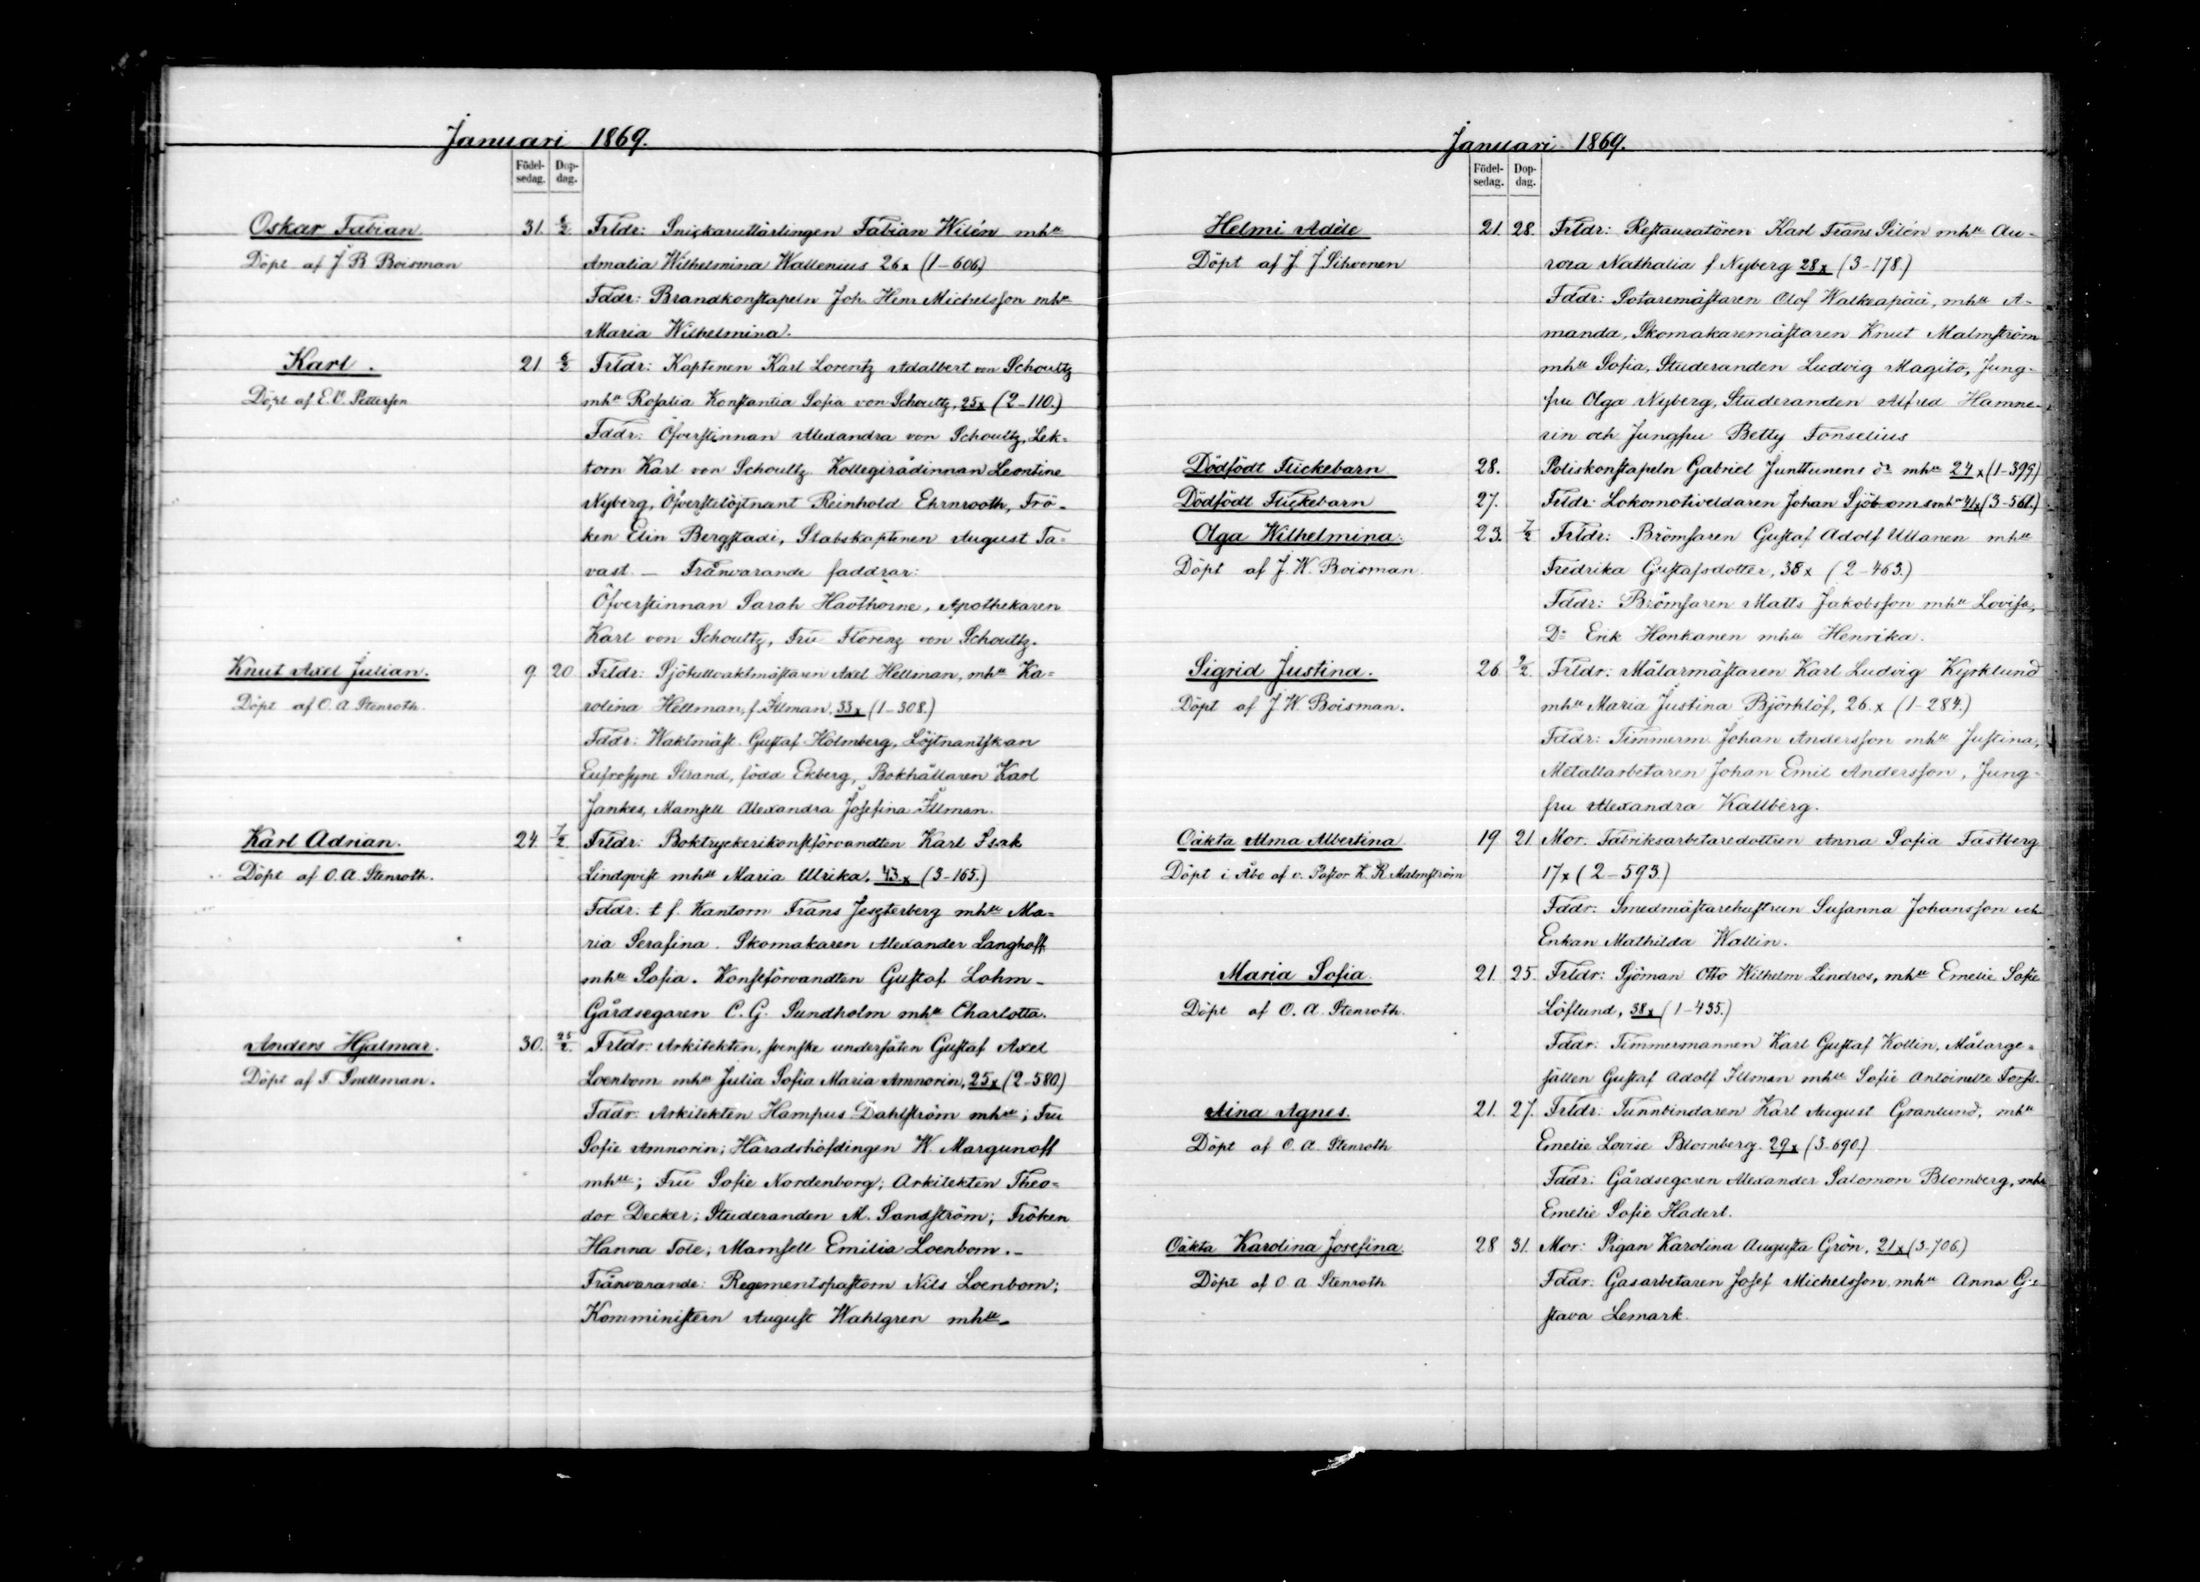 Januari 1869.
Födel-sedag. Dop-dag.
Oskar Fabian 31. 6/2 Frldr: Snickareuttärlingen Fabian Wilén mhu
Döpt af J B Boisman Amalia Wilhelmina Wallenius 26x (1-606.)
Fddr: Brandkonstapeln Joh. Henr Michelsson mhu
Maria Wilhelmina.
Karl. 21 6/2 Frldr: Kaptenen Karl Lorentz Adalbert von Schoultz
Döpt af E. V. Pettersen mhu Rosalia Konstantia Sofia von Schoultz, 25x (2-110.)
Fddr: Öfverstinnan Alexandra von Schoultz, Lek-
torn Karl von Schoultz Kollegirådinnan Leontine
Nyberg, Öfverstelöjtnant Reinhold Ehrnrooth, Frö-
ken Elin Bergstadi, Stabskaptenen August Ta-
vast. — Frånvarande faddrar:
Öfverstinnan Sarah Havthorne, Apothekaren
Karl von Schoultz, Fru Florenz von Schoultz.
Knut Axel Julian. 9 20 Frldr: Sjötullvaktmästaren Axel Hellman, mhu Ka-
Döpt af O. A Stenroth. rolina Hellman, f. Illman, 33x (1-308.)
Fddr: Waktmäst. Gustaf Holmberg, Löjtnantskan
Eufrosyne Strand, född Ekberg, Bokhållaren Karl
Jankes, Mamsell Alexandra Josefina Illman.
Karl Adrian. 24 7/2 Frldr: Boktryckerikonstförvandten Karl Isak
Döpt af O. A. Stenroth. Lindqvist mhu Maria Ulrika, 43x (3-165.)
Fddr: t. f. Kantorn Frans Jeszterberg mhu Ma-
ria Serafina. Skomakaren Alexander Langhoff
mhu Sofia. Konstförvandten Gustaf Lohm-
Gårdsegaren C. G. Sundholm mhu Charlotta.
Anders Hjalmar. 30. 25/2 Frldr: Arkitekten, svenske undersåten Gustaf Axel
Döpt af T. Snellman. Loenbom mhu Julia Sofia Maria Amnorin, 25x (2-580)
Fddr: Arkitekten Hampus Dahlström mhu; Fru
Sofie Amnorin; Häradshöfdingen W. Margunoff
mhu; Fru Sofie Nordenborg; Arkitekten Theo-
dor Decker; Studeranden M. Sandström; Fröken
Hanna Tole; Mamsell Emilia Loenbom.-
Frånvarande: Regementspastorn Nils Loenbom;
Komministern August Wahlgren mhu-
Januari 1869.
Födel-sedag. Dop-dag.
Helmi Adéle 21. 28. Frldr: Restauratören Karl Frans Silén mhu Au-
Döpt af J. J. Sihvonen rora Nathalia f Nyberg 28x (3-178.)
Fddr: Sotaremästaren Olof Walkeapää, mhu A-
manda, Skomakaremästaren Knut Malmström
mhu Sofia, Studeranden Ludvig Magito, Jung-
fru Olga Nyberg, Studeranden Alfred Hamne-
rin och Jungfru Betty Fonselius
Dödfödt Flickebarn 28. Poliskonstapeln Gabriel Junttunens dr mhu 24x (1-399)
Dödfödt Flickebarn 27. Frldr: Lokomotiveldaren Johan Sjöbloms mhu 41x (3-561.)
Olga Wilhelmina. 23. 7/2 Frldr: Brömsaren Gustaf Adolf Ullanen mhu
Döpt af J. W. Boisman. Fredrika Gustafsdotter, 38x (2-463.)
Fddr: Brömsaren Matts Jakobsson mhu Lovisa,
Do Erik Honkanen mhu Henrika.
Sigrid Justina. 26. 9/2. Frldr: Målarmästaren Karl Ludvig Kyrklund
Döpt af J. W. Boisman. mhu Maria Justina Björklöf, 26.x (1-284.)
Fddr: Timmerm. Johan Andersson mhu Justina,
Metallarbetaren Johan Emil Andersson, Jung-
fru Alexandra Kallberg.
Oäkta Alma Albertina 19 21 Mor. Fabriksarbetaredottren Anna Sofia Fastberg
Döpt i Åbo af v. Pastor K. R. Malmström 17x (2-593.)
Fddr: Smedmästarehustrun Susanna Johansson och
Enkan Mathilda Wallin.
Maria Sofia. 21. 25. Frldr: Sjöman Otto Wilhelm Lindros, mhu Emelie Sofie
Döpt af O. A. Stenroth. Löflund, 38x (1-435.)
Fddr: Timmermannen Karl Gustaf Kollin, Målarge-
sällen Gustaf Adolf Illman mhu Sofie Antoinette Forss.
Aina Agnes. 21. 27. Frldr: Tunnbindaren Karl August Granlund, mhu
Döpt af O. A. Stenroth Emelie Lovise Blomberg. 29x (3-690.)
Fddr: Gårdsegaren Alexander Salomon Blomberg, mhu
Emelie Sofie Haderl.
Oäkta Karolina Josefina. 28 31. Mor: Pigan Karolina Augusta Grön, 21x (3-706.)
Döpt af O. A Stenroth Fddr: Gasarbetaren Josef Michelsson, mhu Anna Gu-
stava Lemark.